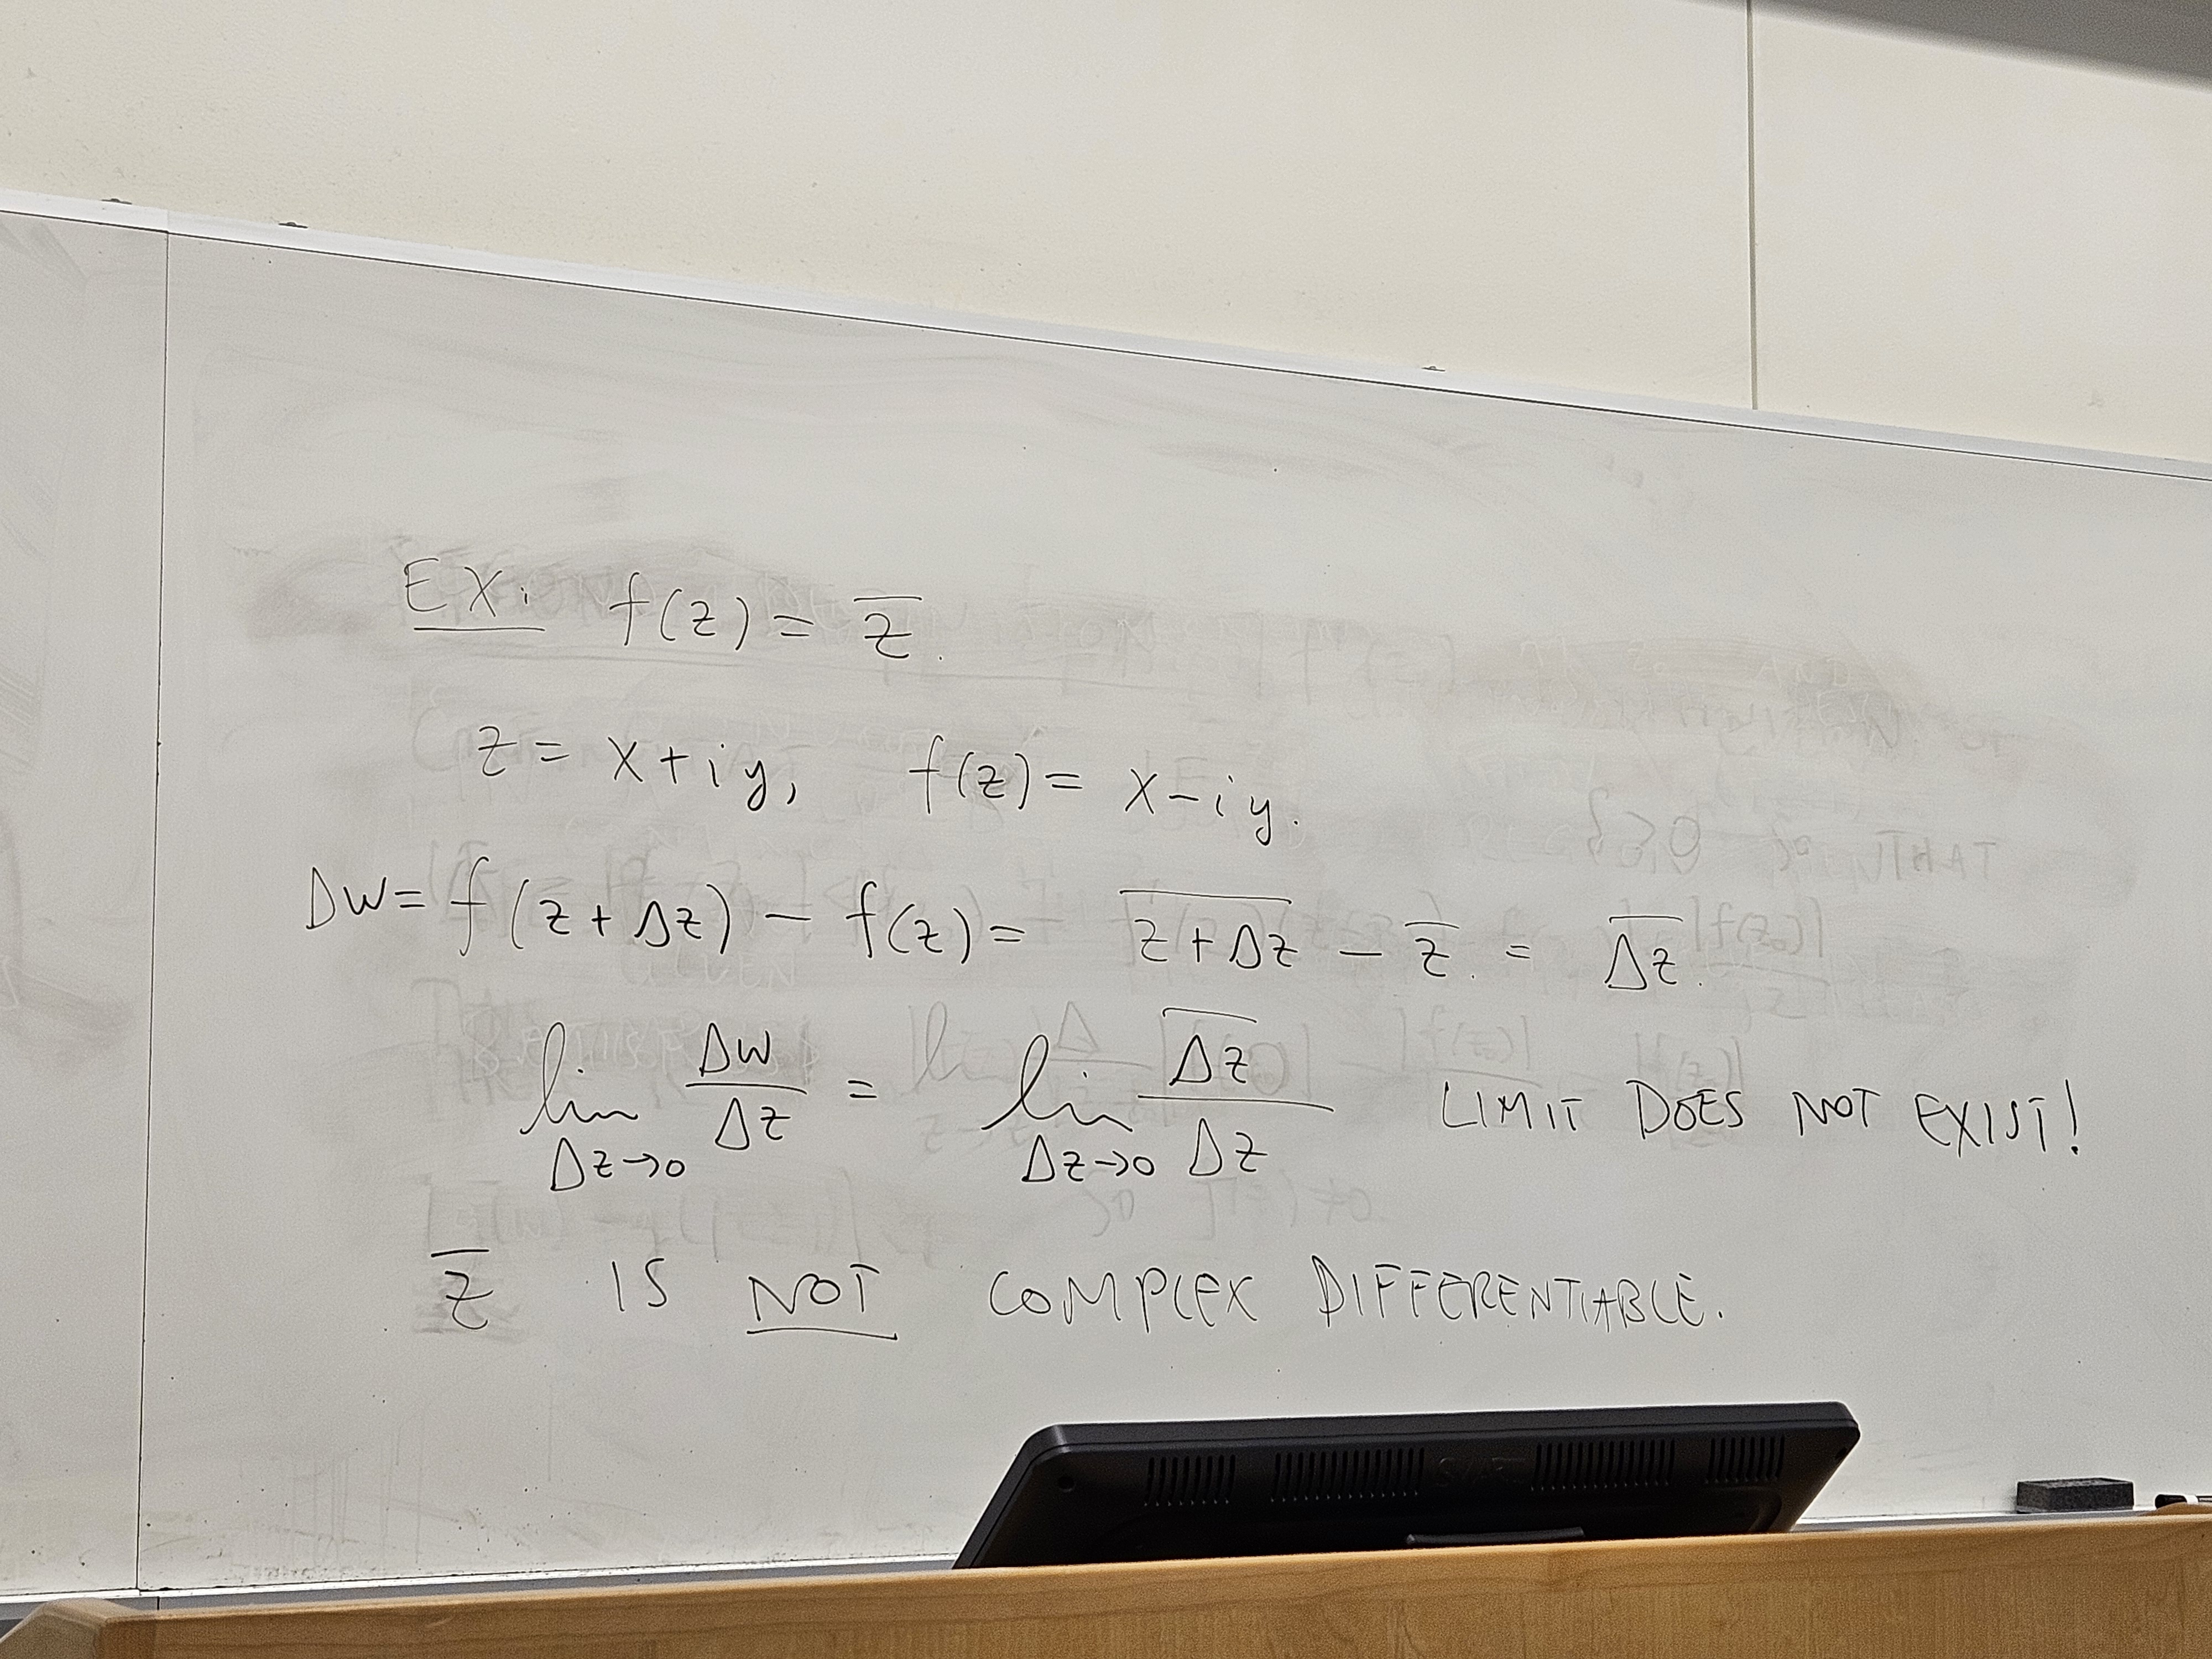 EX. f(z) = z̅.
z = x+iy, f(z) = x-iy.
Δw = f(z+Δz) - f(z) = \overline{z+Δz} - \overline{z}. = \overline{Δz}.
lim_{Δz→0} Δw/Δz = lim_{Δz→0} \overline{Δz}/Δz LIMIT DOES NOT EXIST!
z̅ IS NOT COMPLEX DIFFERENTIABLE.